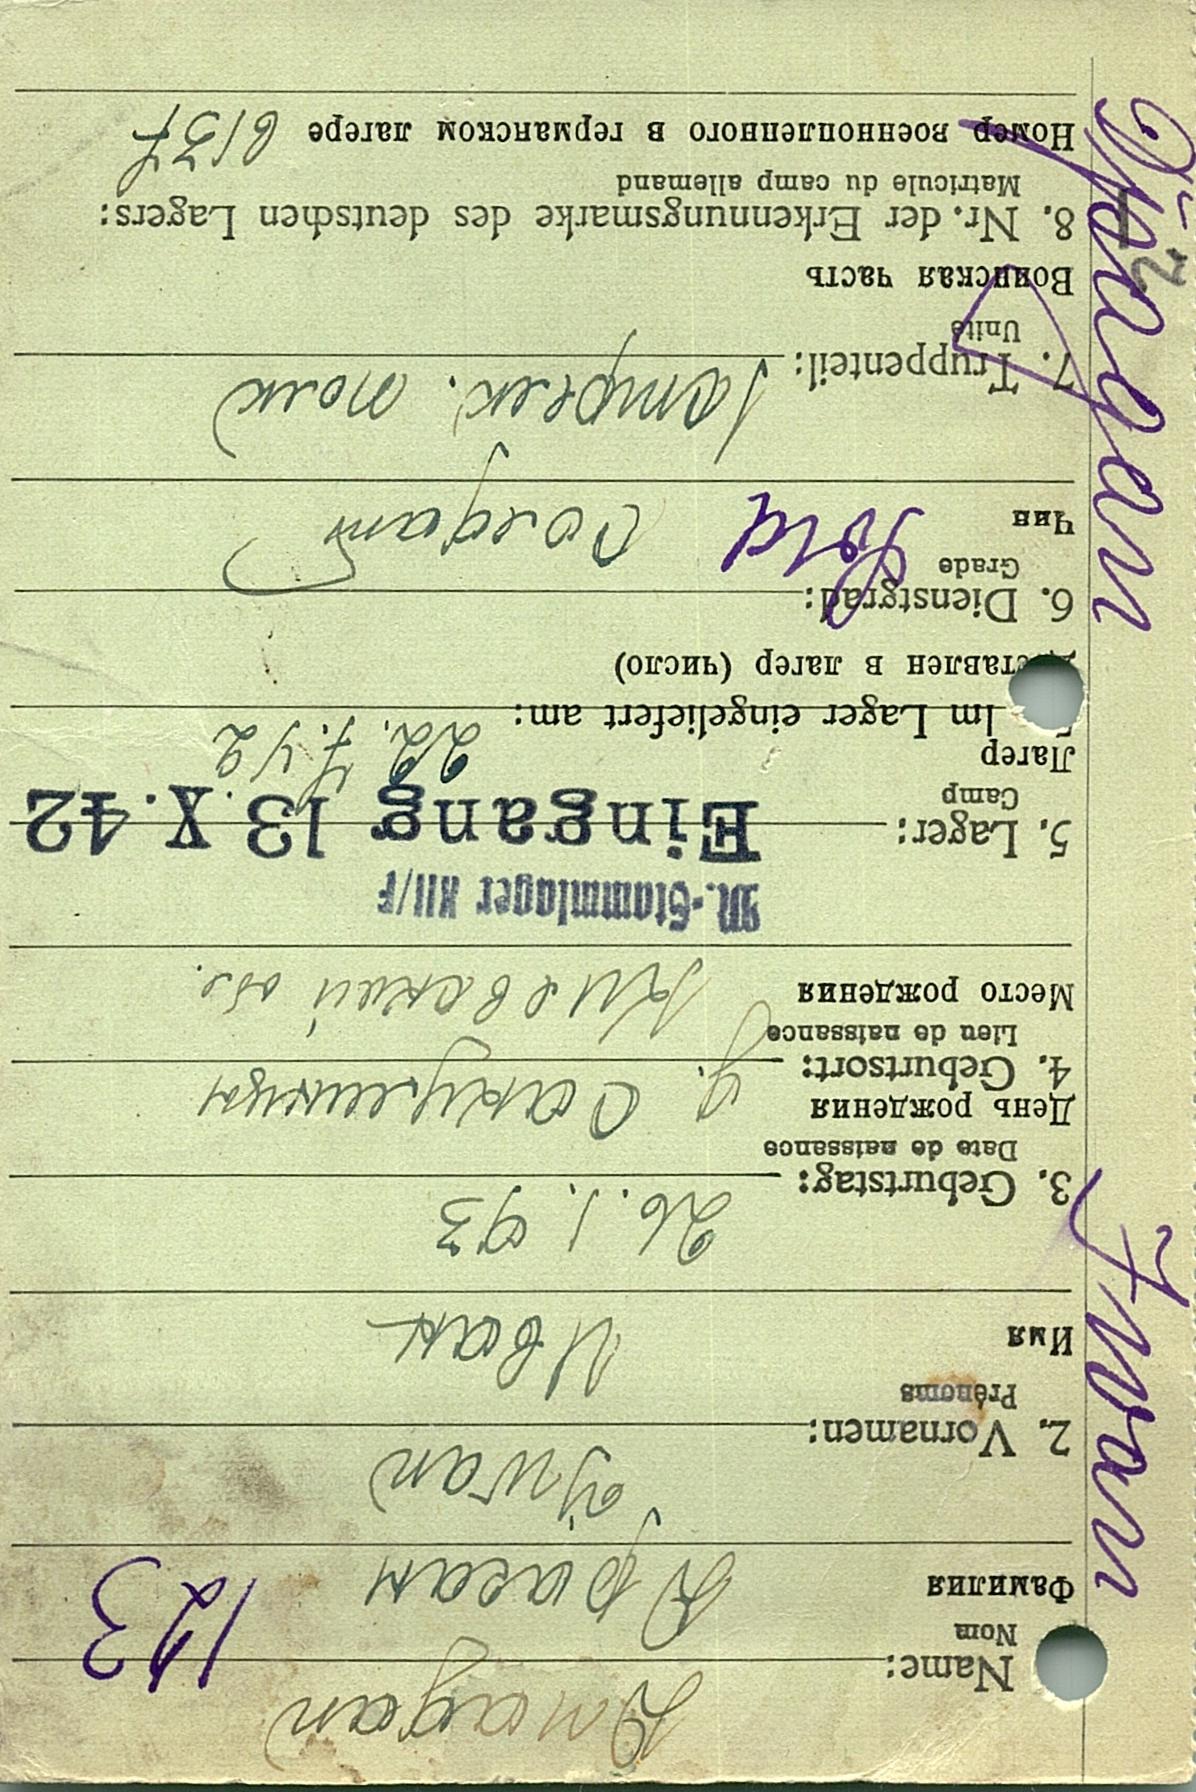 123
Name:
Nom
Фамилия
Драган
2. Vornamen: Jwan
Prénoms
Имя Иван
3. Geburtstag: 26.1.93
Date de naissance
День рождения
4. Geburtsort:
Lieu de naissance
Место рождения Киевской обл.
M.-Stammlager XII/F
5. Lager: Eingang 13.X.42
Camp
Лагер
Im Lager eingeliefert am: 22.7.42
ставлен в лагер (число)
6. Dienstgrad: Sold
Grade
Чин Солдат
7. Truppenteil:
Unité
Воинская часть
8. Nr. der Erkennungsmarke des deutschen Lagers:
Matricule du camp allemand
Номер военнопленного в германском лагере 6137
Iwan